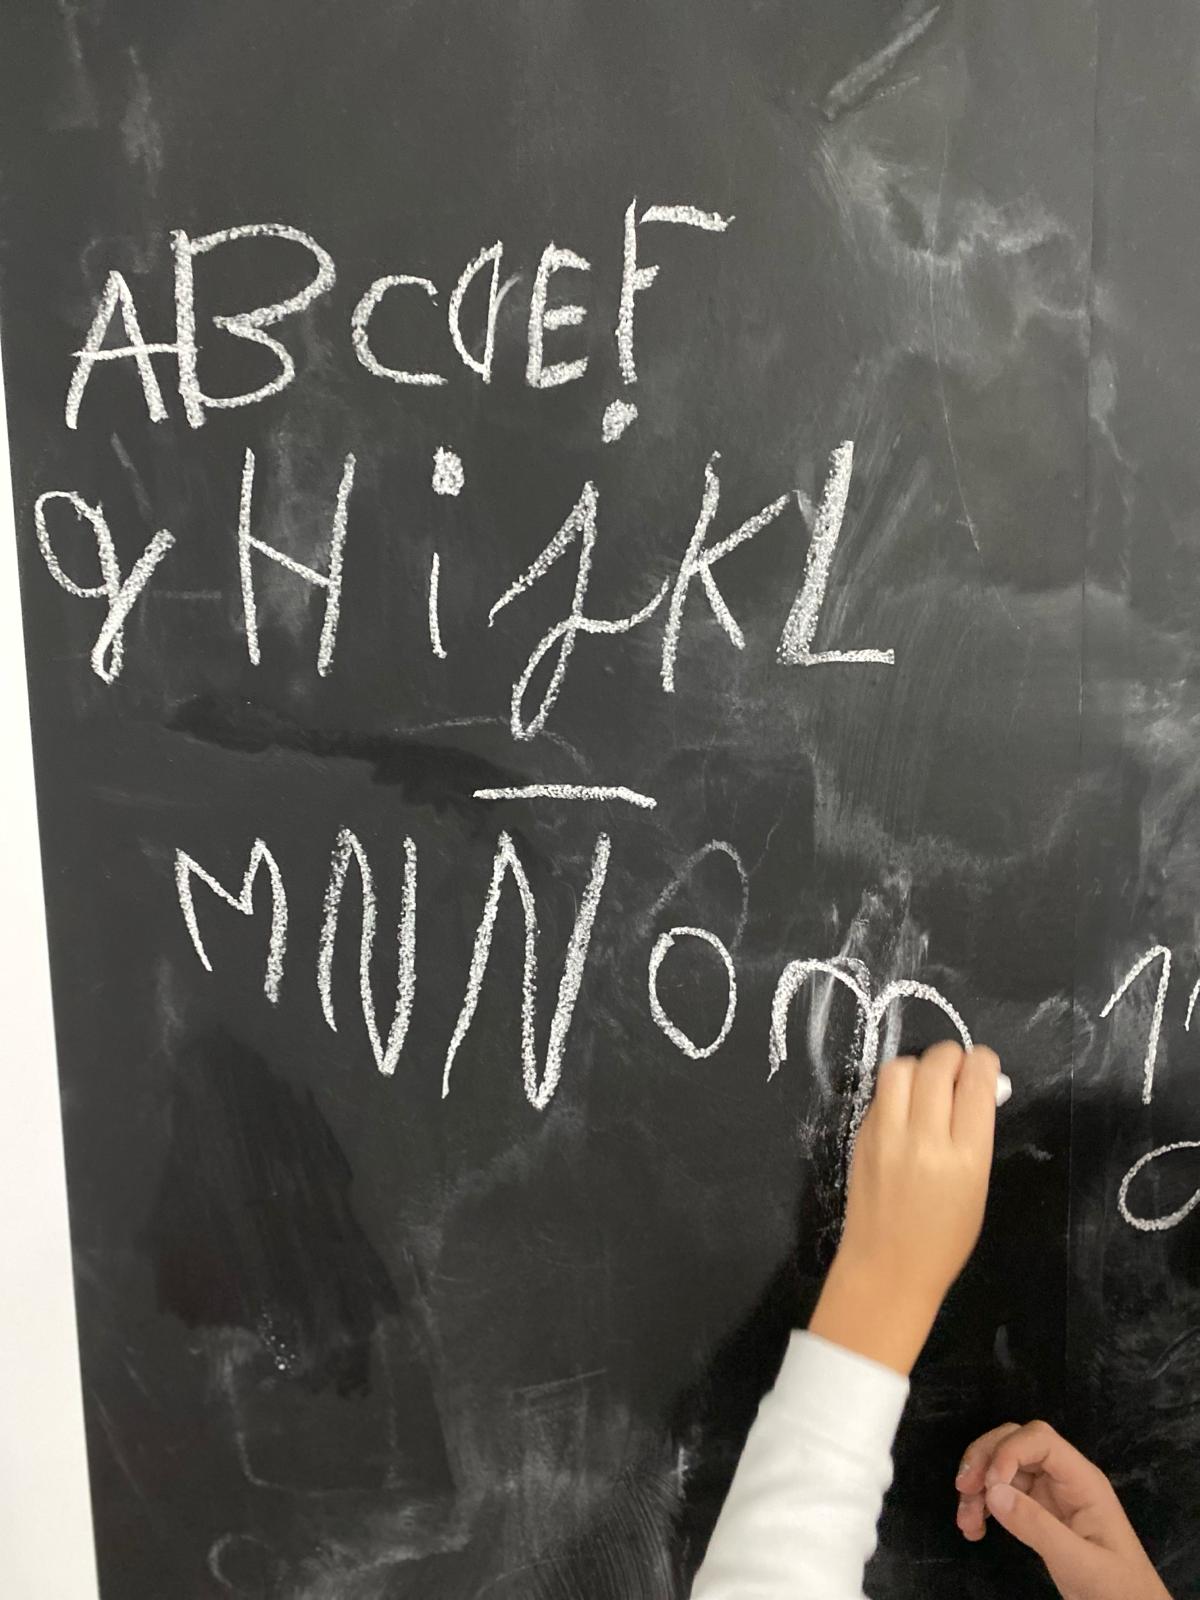 ABCdEF
gHijKL
MNÑOm